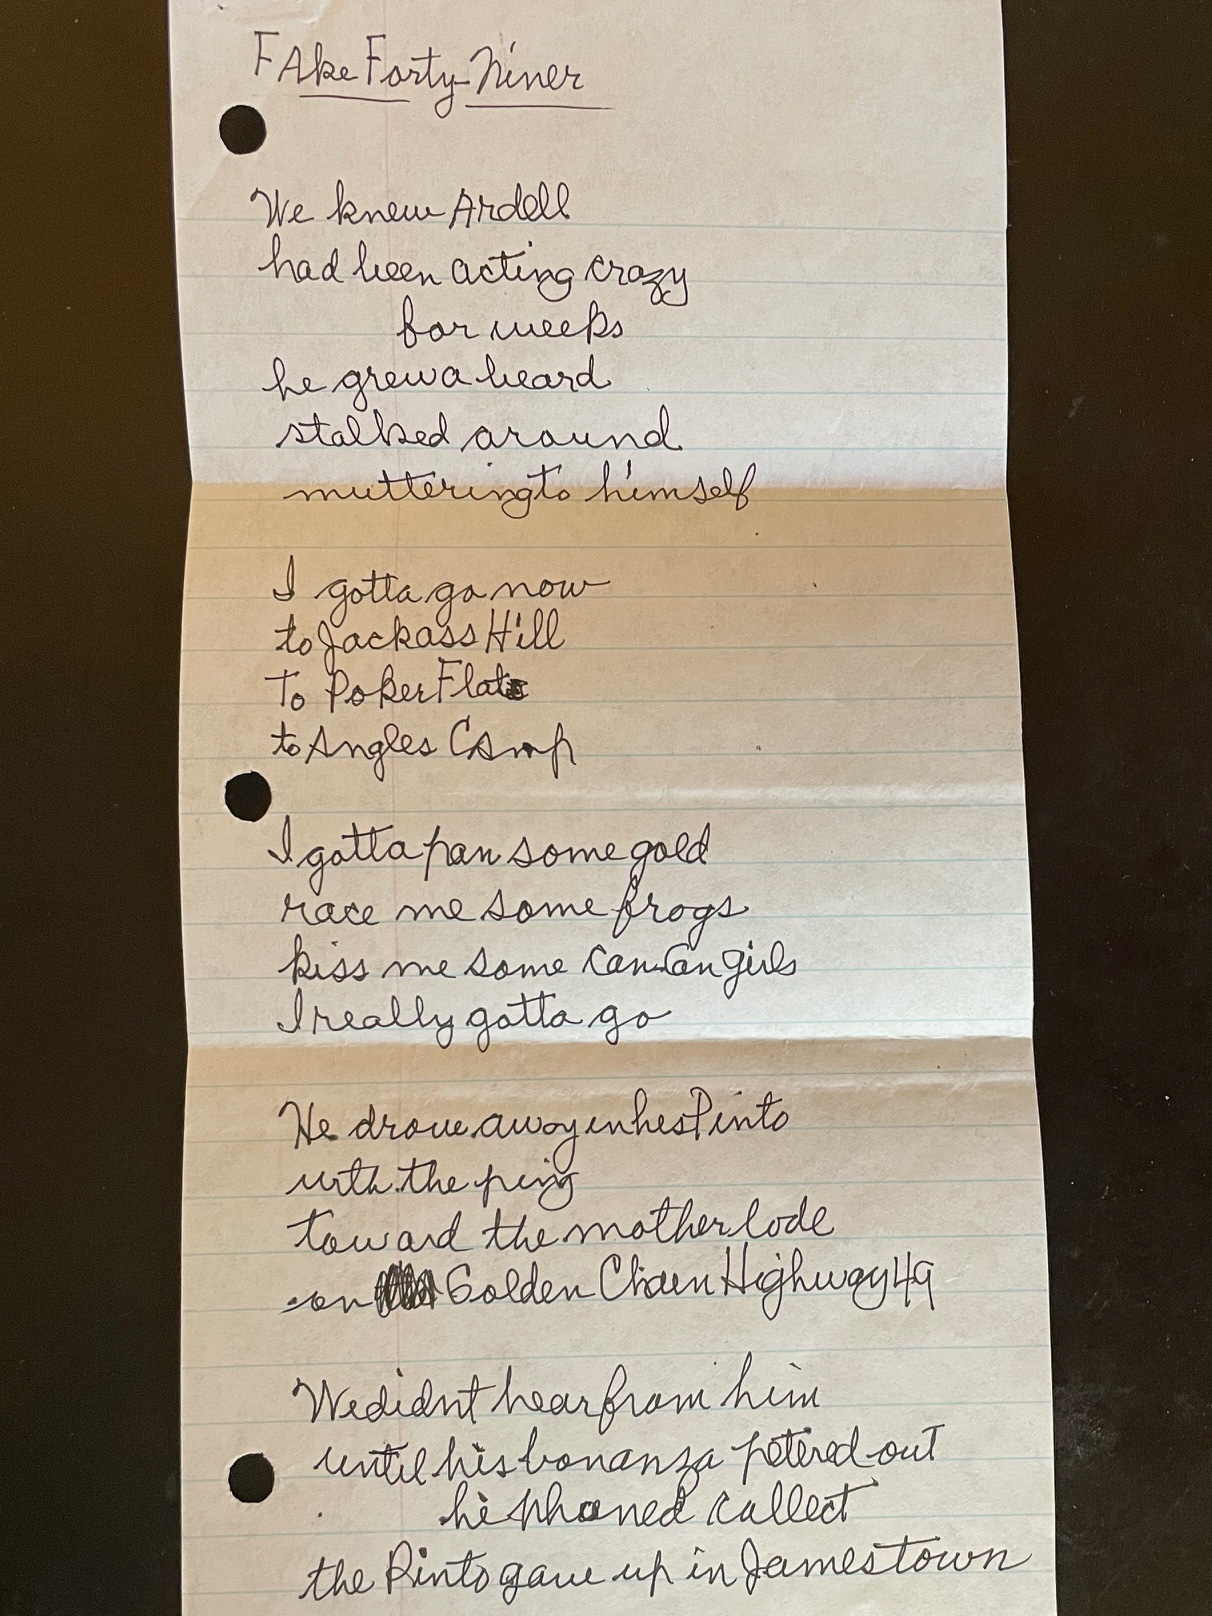 FAke Forty-Niner
We knew Ardell
had been acting crazy
for weeks
he grew a beard
stalked around
muttering to himself
I gotta go now
to Jackass Hill
To Poker Flat
to Angles Camp
I gotta pan some gold
race me some frogs
kiss me some Can-Can girls
I really gotta go
He drove away in hes Pinto
with the ping
toward the mother lode
on Golden Chaen Highway 49
We didnt hear from him
until his bonanza petered out
he phoned collect
the Pinto gave up in Jamestown